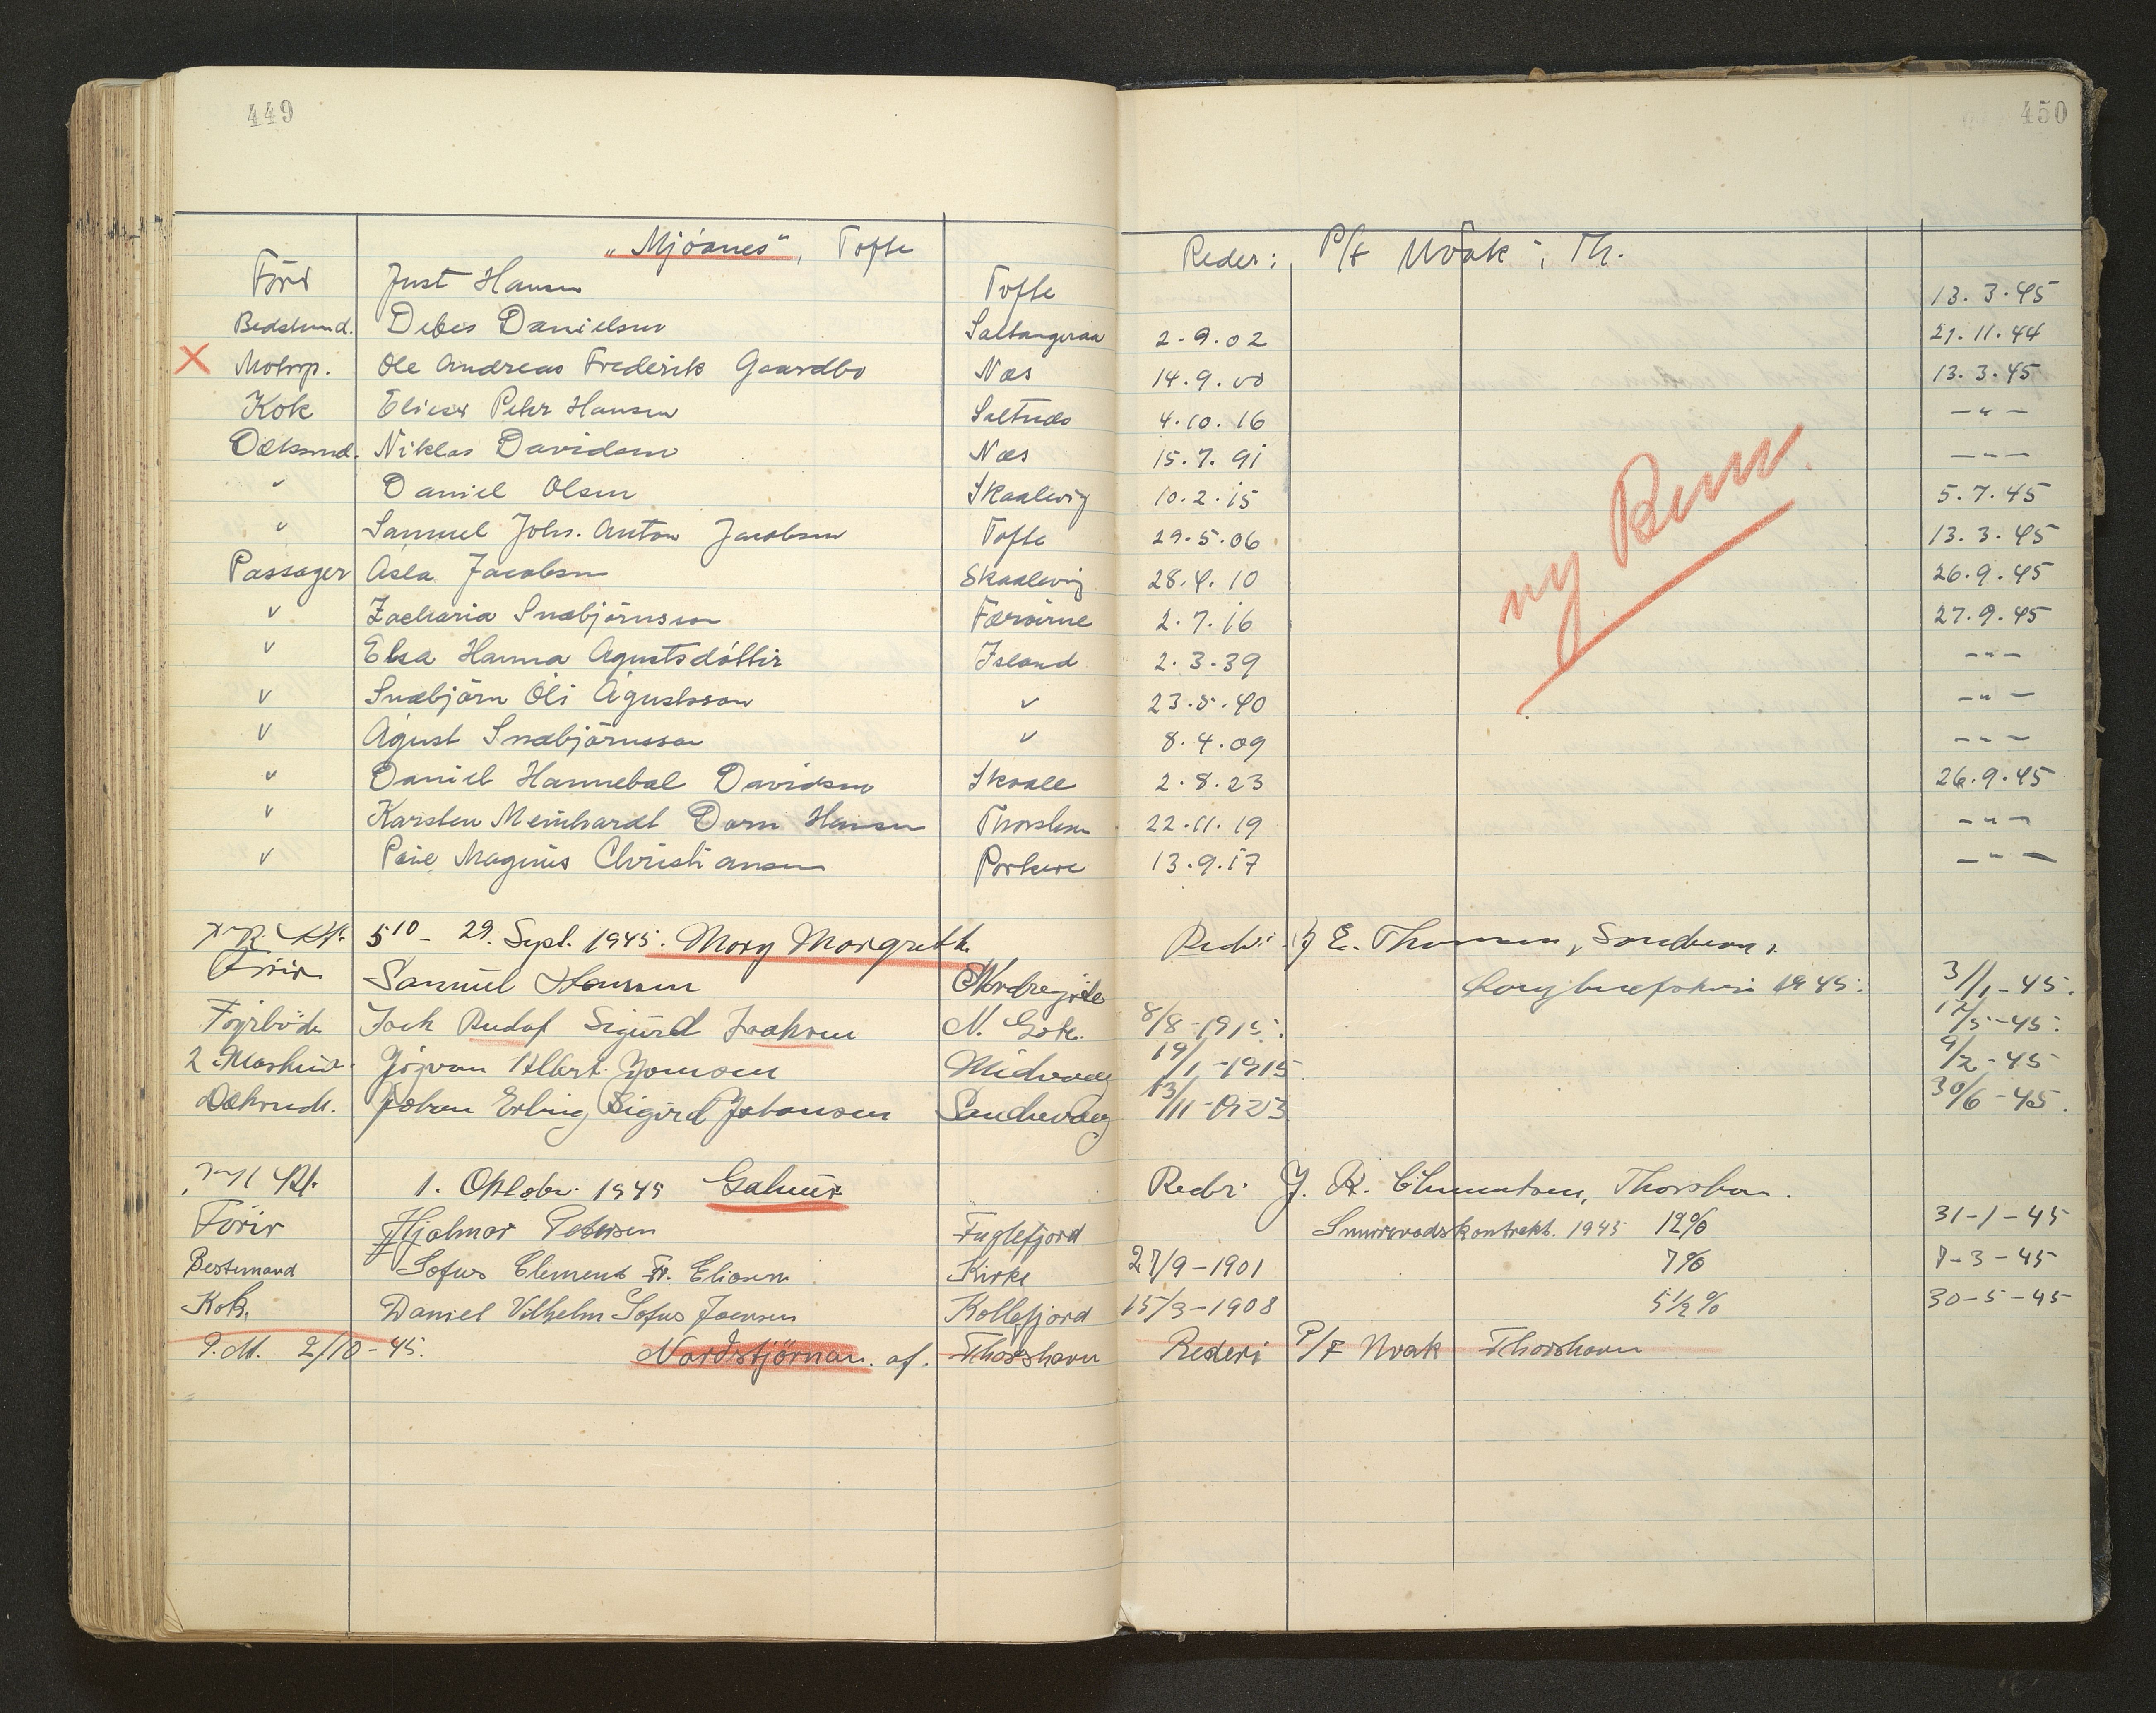 449
450
"Mjóanes", Tofte Reder: P/f "Uvak", Th.
Förer Just Hansen Tofte 13.3.45
Bedstmd. Debes Danielsen Saltangeraa 2.9.02 21.11.44
X Motorp. Ole Andreas Frederik Gaardbo Næs 14.9.00 13.3.45
Kok Elieser Peter Hansen Saltnes 4.10.16 -"-
Dæksmd. Niklas Davidsen Næs 15.7.91 -"-
" Daniel Olsen Skaalevig 10.2.15 5.7.45
" Samuel Johs. Anton Jacobsen Tofte 29.5.06 13.3.45
Passager Asla Jacobsen Skaalevig 28.4.10 26.9.45
" Zacharia Snæbjörnsson Færöerne 2.7.16 27.9.45
" Elsa Hanna Agustsdóttir Island 2.3.39 -"-
" Snæbjörn Óli Ágústsson " 23.5.40 -"-
" Ágúst Snæbjörnsson " 8.4.09 -"-
" Daniel Hannebal Davidsen Skaale 2.8.23 26.9.45
" Karsten Meinhardt Dam Hansen Thorshavn 22.11.19 -"-
" Magnus Christiansen Porkere 13.9.17 -"-
ny
510 - 29. Sept. 1945. Mary Margreth. E. Thomsen,
Samuel Hansen Nordregöte 1945. 3/1-45.
Fyrböder Sigurd N. Göte. 8/8-1915. 17/5-45.
2 Maskin. Jógvan Albert Midvaag 19/1-1915. 9/2-45
Johan Erling Sigurd Johansen Sandevaag 13/11-1923. 30/6-45.
1. Oktober 1945 Rederi J. R. Clementsen, Thorshavn.
Förer Hjalmar Petersen Fuglefjord Snurrevodskontrakt. 1945 12% 31-1-45
Bestemand Sofus Clement Fr. Eliasen Kirke 27/9-1901 7% 7-3-45
Kok. Daniel Vilhelm Sofus Joensen Kollefjord 15/3-1908 5 1/2% 30-5-45
P.M. 2/10-45. Nordstjörnan. af. Thorshavn Rederi P/F Uvak Thorshavn